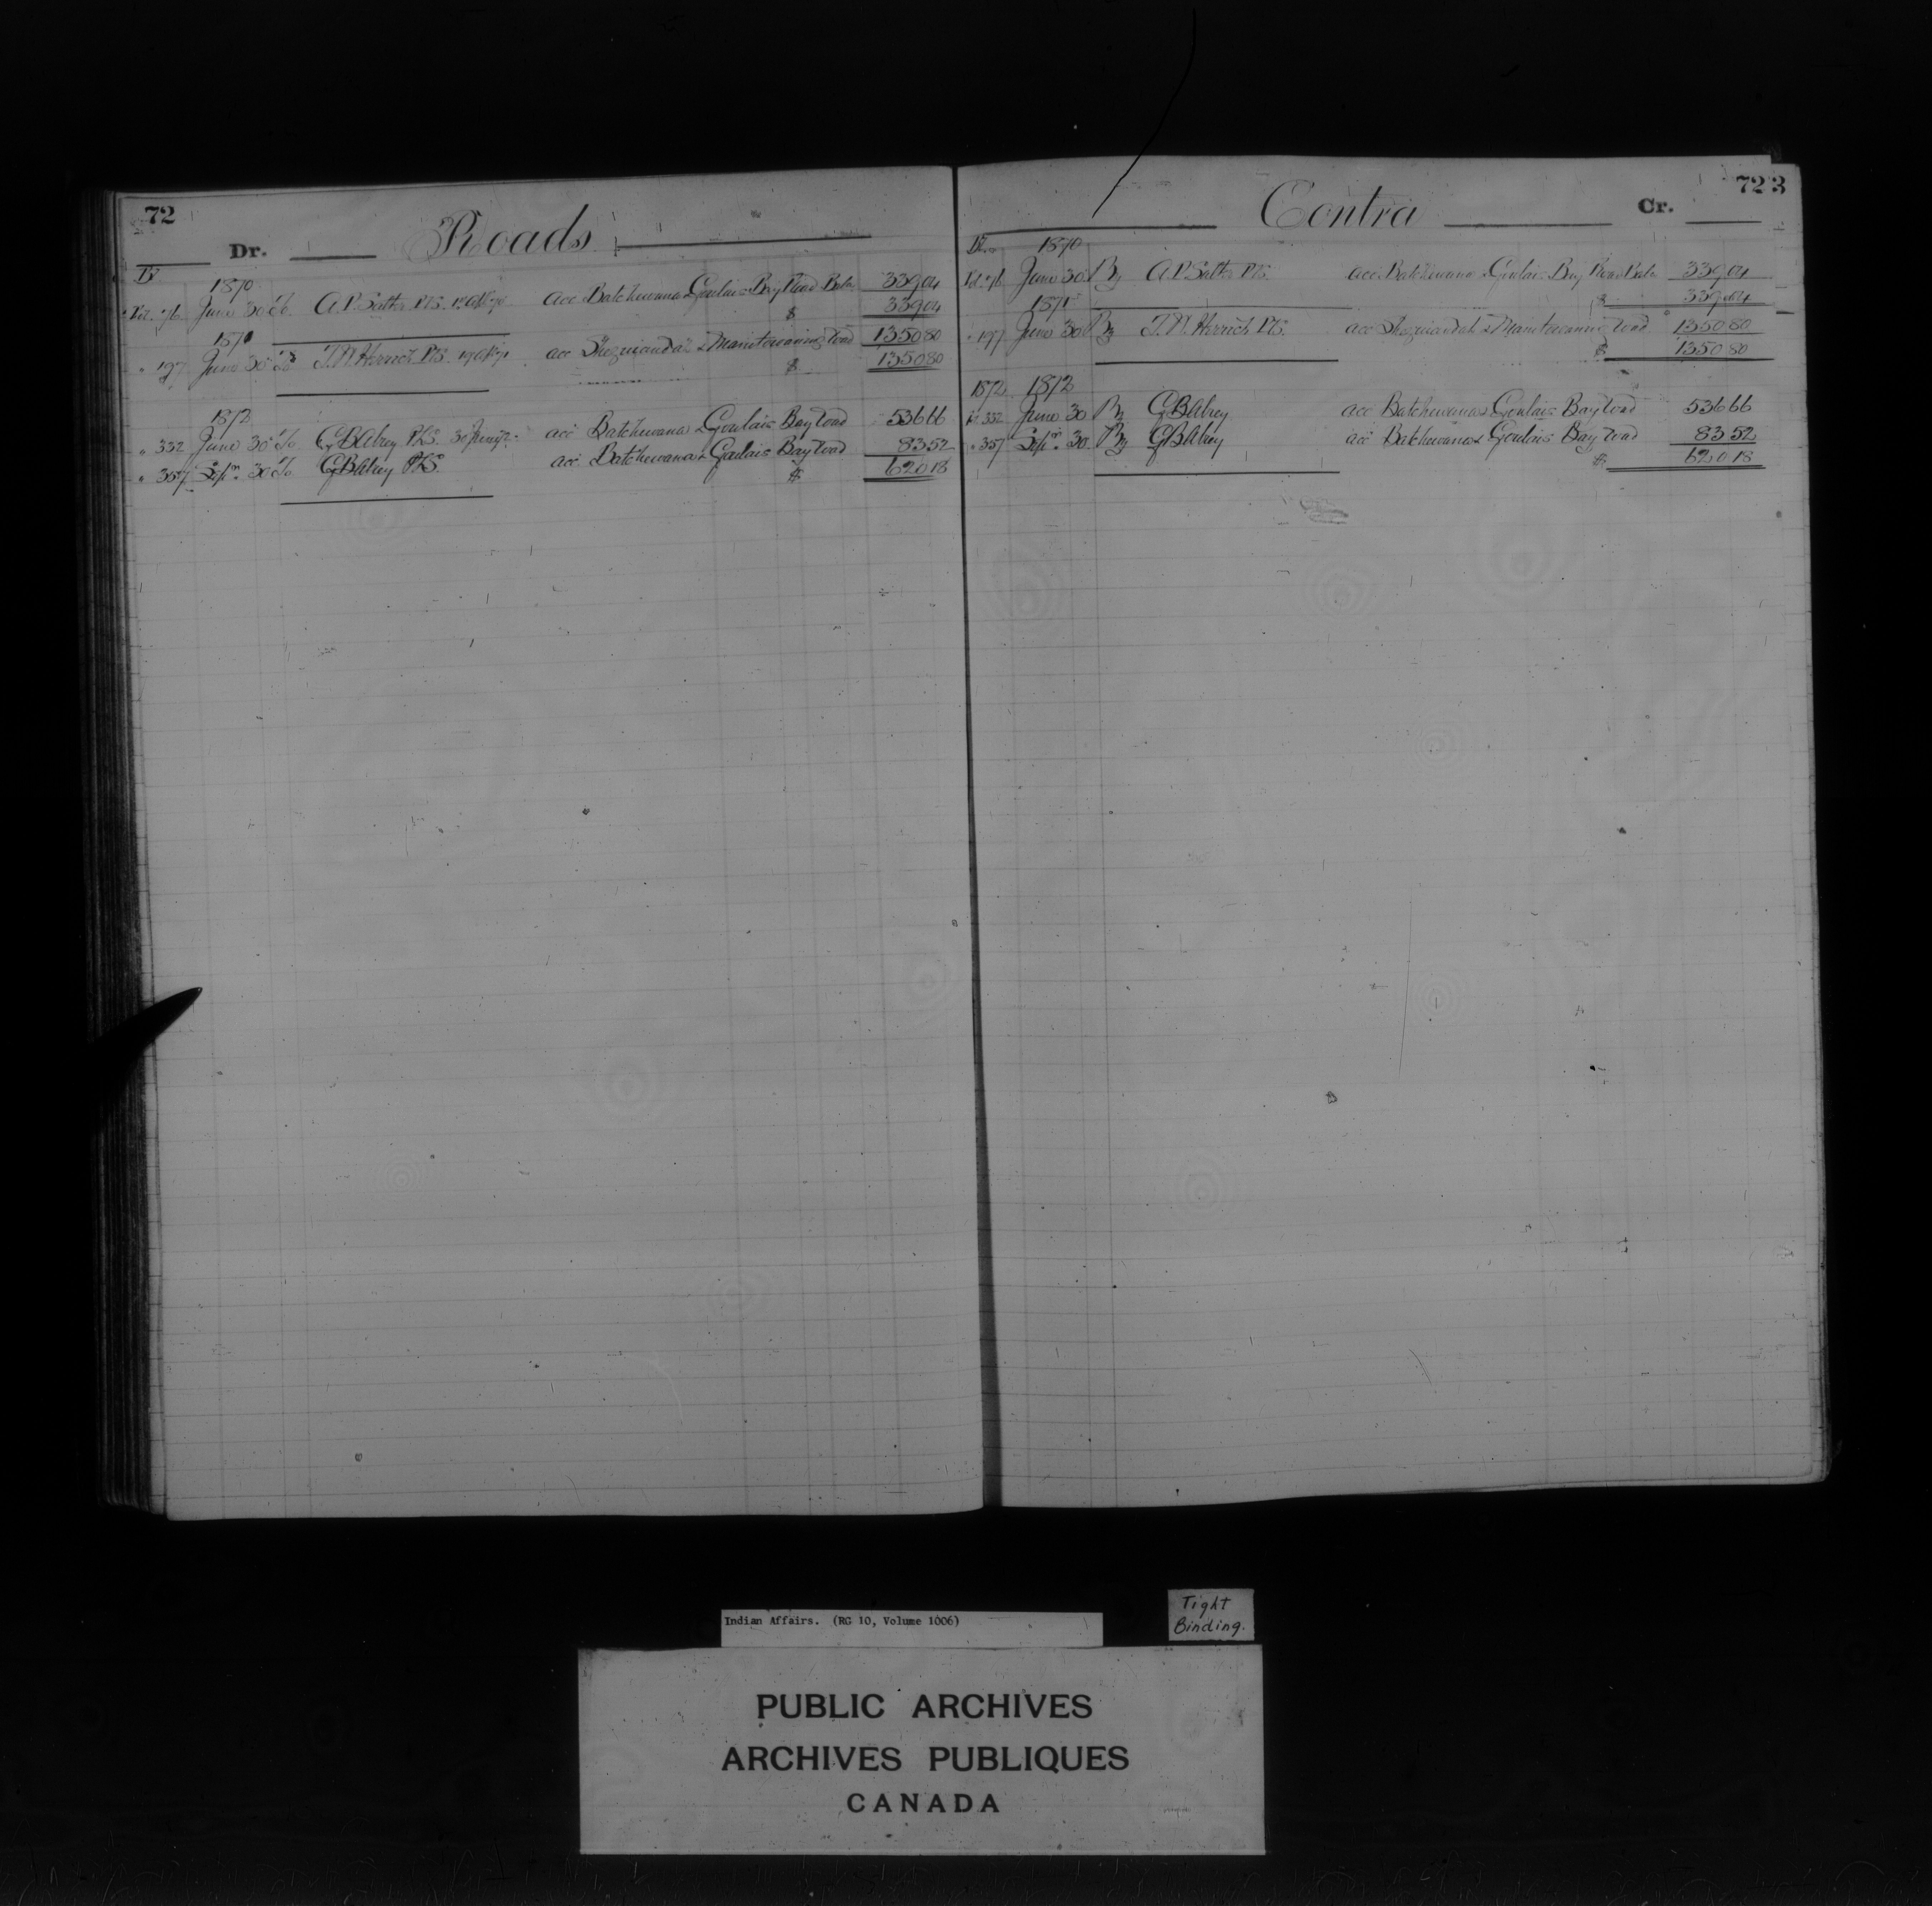 72
Dr. Roads
1870
June 30 To A.P. Salter P.L.S. acc Batchewana & Goulais Bay Road Bala 339 04
$ 339 04
1871
" 197 June 30 To T.N. Herrick P.L.S. acc Sheguiandah & Manitowaning road 1350 80
$ 1350 80
1872
" 332 June 30 To G B Abrey P.L.S. acc Batchewana & Goulais Bay road 536 66
" 357 Sep. 30 To G B Abrey P.L.S. acc Batchewana & Goulais Bay road 83 52
$ 620 18
723
Contra Cr.
1870
June 30 By A.P. Salter P.L.S. acc Batchewana & Goulais Bay Road Bala 339 04
$ 339 04
1871
" 197 June 30 By T.N. Herrick P.L.S. acc Sheguiandah & Manitowaning road 1350 80
$ 1350 80
1872 1872
332 June 30 By G B Abrey acc Batchewana & Goulais Bay road 536 66
" 357 Sep. 30 By G B Abrey acc Batchewana & Goulais Bay road 83 52
$ 620 18
Tight
Binding.
Indian Affairs. (RG 10, Volume 1006)
PUBLIC ARCHIVES
ARCHIVES PUBLIQUES
CANADA